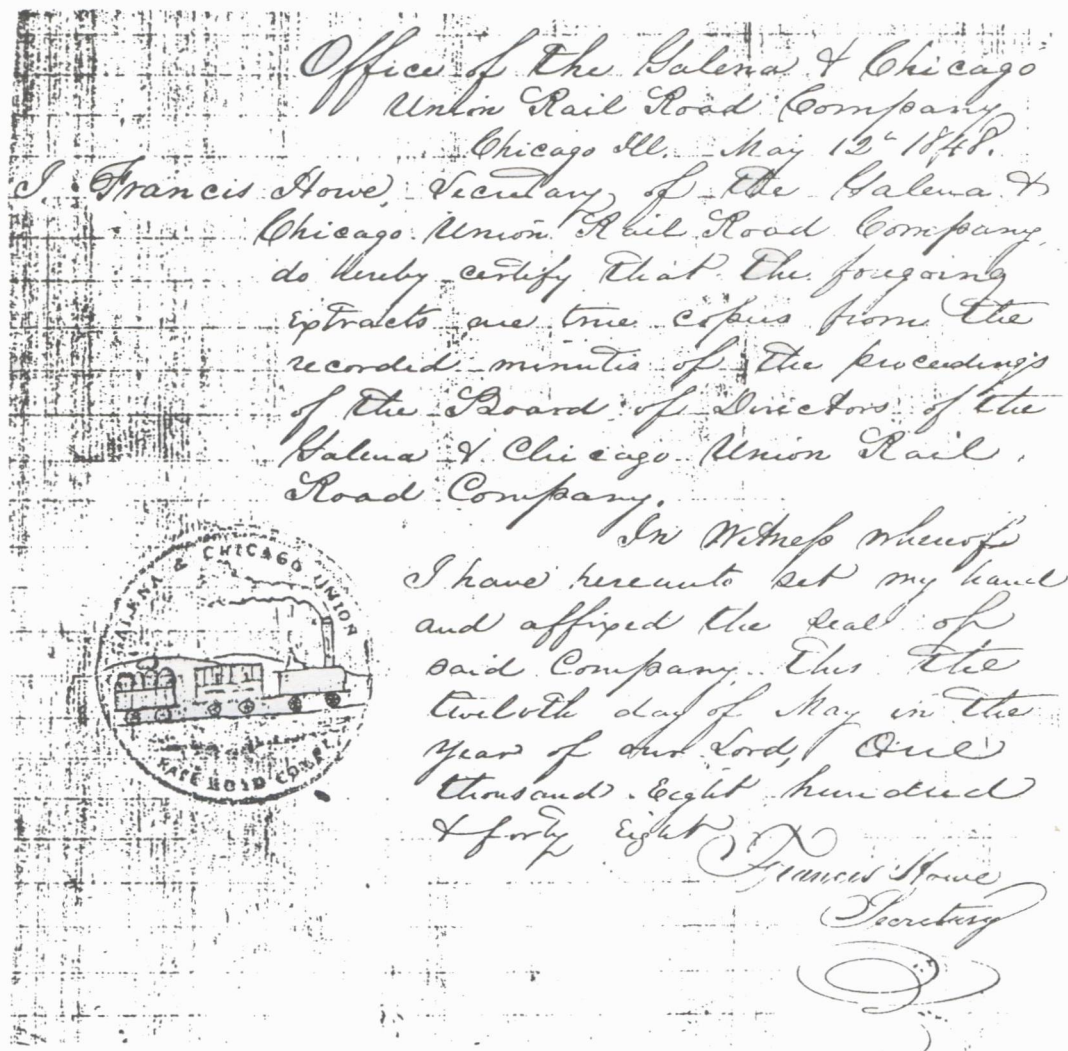 Office of the Galena & Chicago
Union Rail Road Company
Chicago Ill. May 12th 1848.
I, Francis Howe, Secretary of the Galena &
Chicago Union Rail Road Company,
do hereby certify that the foregoing
extracts are true copies from the
recorded minutes of the proceedings
of the Board of Directors of the
Galena & Chicago Union Rail
Road Company.
In Witness whereof
I have hereunto set my hand
and affixed the seal of
said Company this the
twelvth day of May in the
year of our Lord, One
thousand Eight hundred
& forty Eight
Francis Howe
Secretary
GALENA & CHICAGO UNION
RAIL ROAD COMP.